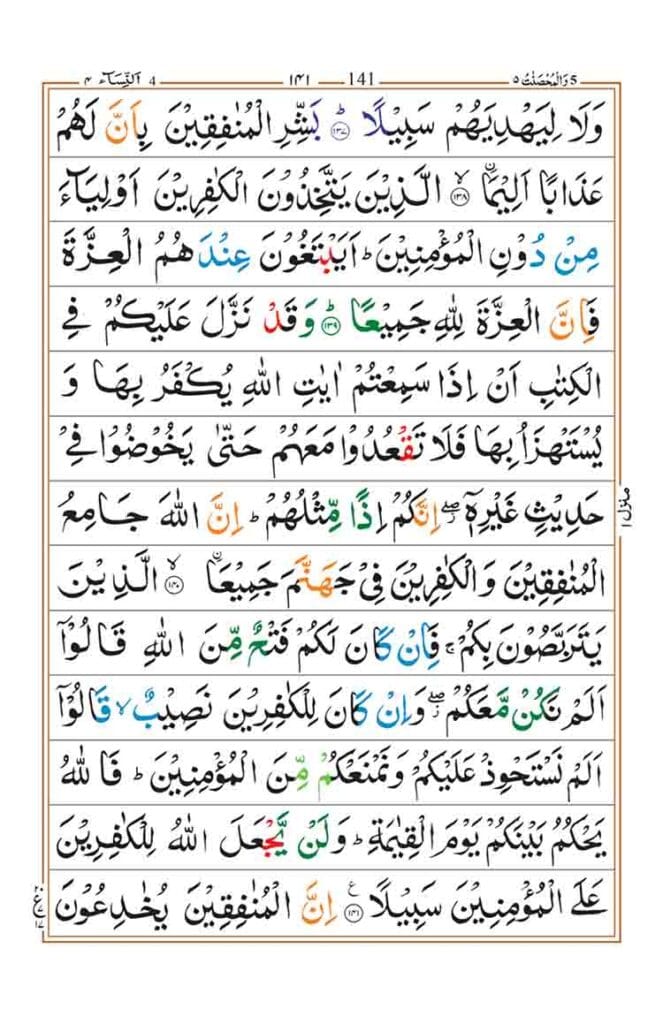 ٤ اَلنِّسَآء 4 ١٤١ 141 وَالْمُحْصَنٰتُ ٥ 5
وَلَا لِيَهْدِيَهُمْ سَبِيْلًا ؕ﴿۱۳۷﴾ بَشِّرِ الْمُنٰفِقِيْنَ بِاَنَّ لَهُمْ
عَذَابًا اَلِيْمَاۙ ﴿۱۳۸﴾ الَّذِيْنَ يَتَّخِذُوْنَ الْكٰفِرِيْنَ اَوْلِيَآءَ
مِنْ دُوْنِ الْمُؤْمِنِيْنَ ؕ اَيَبْتَغُوْنَ عِنْدَ هُمُ الْعِزَّةَ
فَاِنَّ الْعِزَّةَ لِلّٰهِ جَمِيْعًا ؕ﴿۱۳۹﴾ وَقَدْ نَزَّلَ عَلَيْكُمْ فِى
الْكِتٰبِ اَنْ اِذَا سَمِعْتُمْ اٰيٰتِ اللّٰهِ يُكْفَرُ بِهَا وَ
يُسْتَهْزَاُ بِهَا فَلَا تَقْعُدُوْا مَعَهُمْ حَتّٰى يَخُوْضُوْا فِىْ
حَدِيْثٍ غَيْرِهٖۤ ۖ اِنَّكُمْ اِذًا مِّثْلُهُمْ ؕ اِنَّ اللّٰهَ جَامِعُ
الْمُنٰفِقِيْنَ وَالْكٰفِرِيْنَ فِىْ جَهَنَّمَ جَمِيْعَاۙ ﴿۱۴۰﴾ الَّذِيْنَ
يَتَرَبَّصُوْنَ بِكُمْ ۚ فَاِنْ كَانَ لَكُمْ فَتْحٌ مِّنَ اللّٰهِ قَالُوْۤا
اَلَمْ نَكُنْ مَّعَكُمْ ۖ وَاِنْ كَانَ لِلْكٰفِرِيْنَ نَصِيْبٌ ۙ قَالُوْۤا
اَلَمْ نَسْتَحْوِذْ عَلَيْكُمْ وَنَمْنَعْكُمْ مِّنَ الْمُؤْمِنِيْنَ ؕ فَاللّٰهُ
يَحْكُمُ بَيْنَكُمْ يَوْمَ الْقِيٰمَةِ ؕ وَلَنْ يَّجْعَلَ اللّٰهُ لِلْكٰفِرِيْنَ
عَلَى الْمُؤْمِنِيْنَ سَبِيْلًا ﴿۱۴۱﴾ اِنَّ الْمُنٰفِقِيْنَ يُخٰدِعُوْنَ
منزل ١